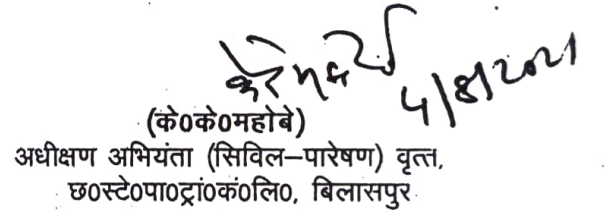 4/8/2021
(के0के0महोबे)
अधीक्षण अभियंता (सिविल–पारेषण) वृत्त,
छ0स्टे0पा0ट्रां0कं0लि0, बिलासपुर